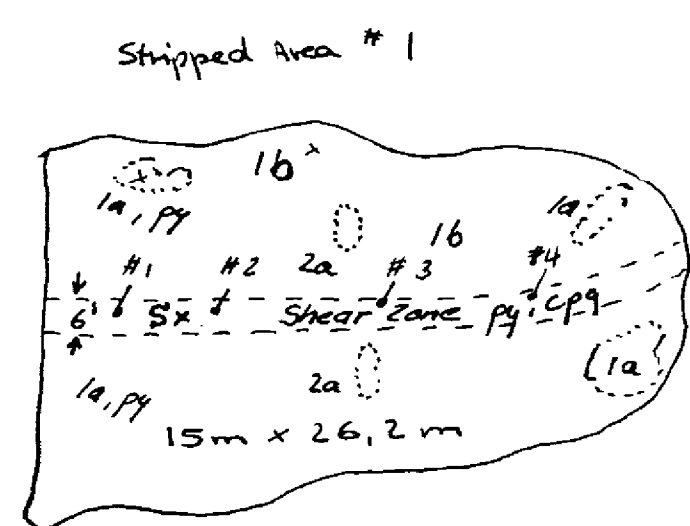 Stripped Area # 1
1b x
x
1a, py
1a
1b
2a
#1
#2
#3
#4
6'
Sx
Shear Zone
py, cpy
1a
1a, py
2a
15m x 26,2 m